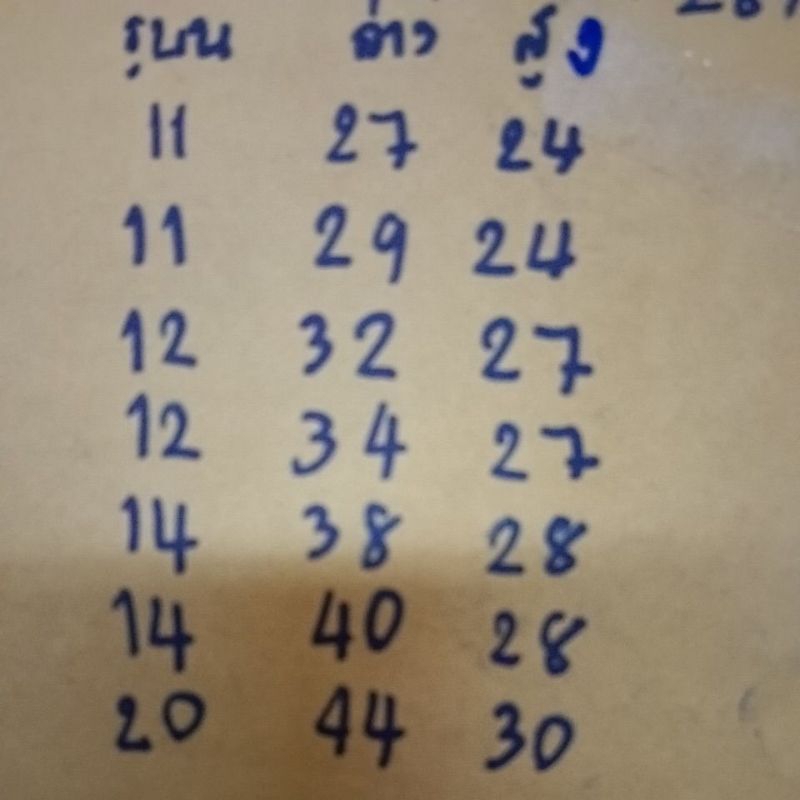 รูบน ล่าง สูง
11 27 24
11 29 24
12 32 27
12 34 27
14 38 28
14 40 28
20 44 30